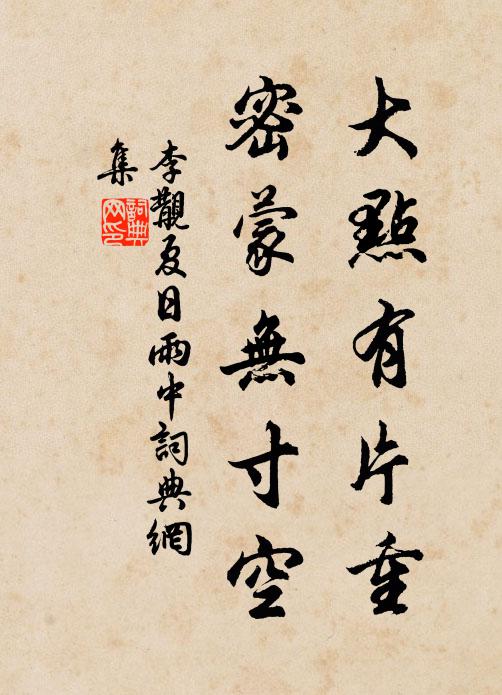 大點有片重
密蒙無寸空
李覯夏日雨中詞典網
集
詞典
网印